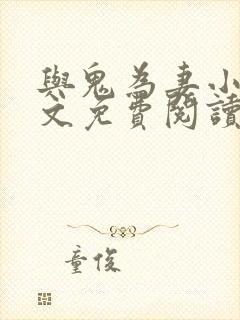 與鬼為妻小
文免費閱讀
童俊